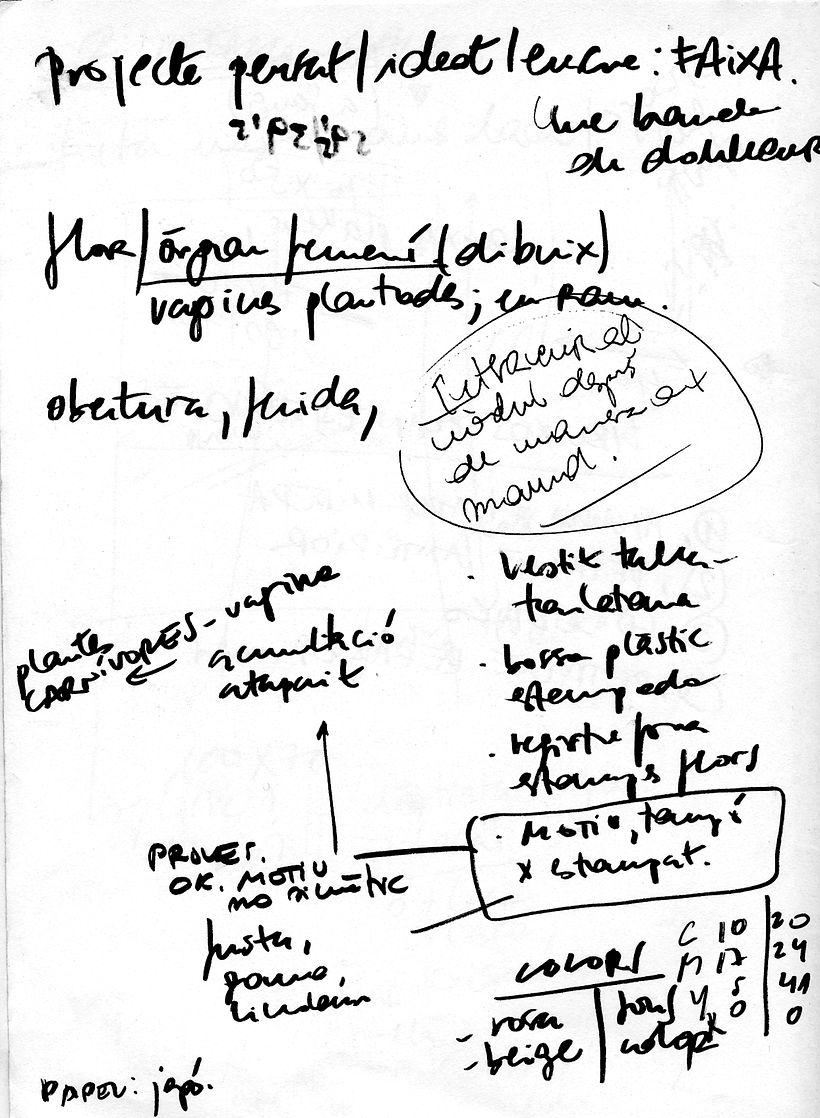 Projecte pensat/ideat/encare: FAiXA.
Une bande
de douleur
flor/òrgan femení (dibuix)
vagines plantades; en ram.
obertura, ferida,
Intervenir el
mòdul després
de manera
manual.
plantes
CARNÍVORES - vagina
acumulació
atapeït.
. vestit
tarlatana
. bossa plàstic
estampada
. registre
estamps flors
. MOTIU, tampó
x estampat.
PROVES.
OK. MOTIU
no simètric
fusta,
goma,
linòleum
COLORS
- rosa
- beige
fons
C 10 20
M 17 24
Y 5 41
0 0
PAPER: japó.